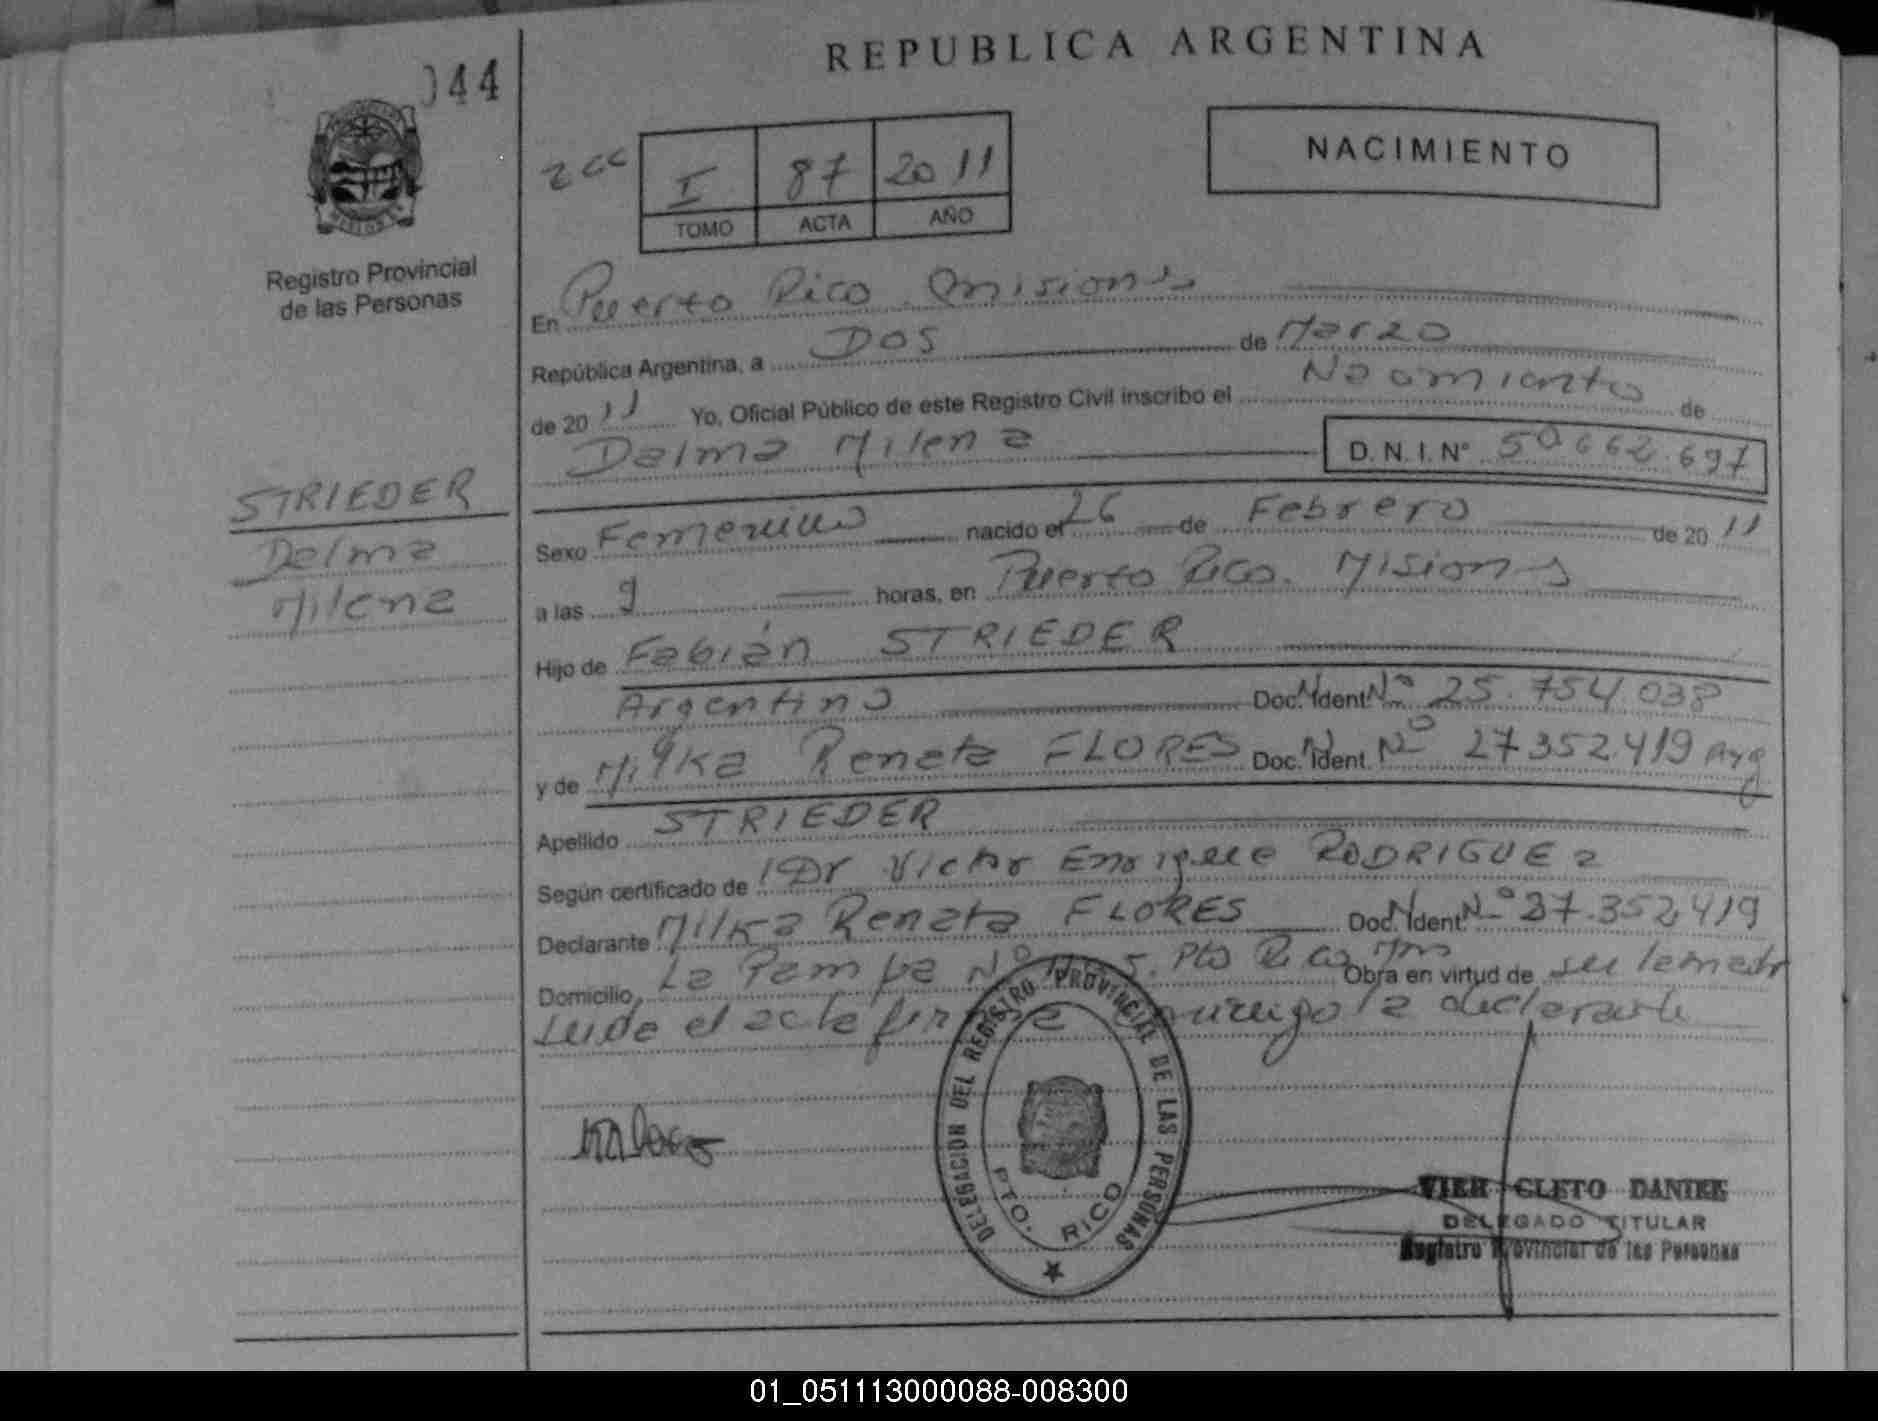 044
REPUBLICA ARGENTINA
NACIMIENTO
I 87 2011
TOMO ACTA AÑO
Registro Provincial
de las Personas
En Puerto Rico Misiones
República Argentina, a DOS de Marzo
de 20 11 Yo, Oficial Público de este Registro Civil inscribo el de
Dalma Milena D.N.I.Nº 50.662.697
STRIEDER
Dalma
Milena
Sexo Femenino nacido el 26 de Febrero de 20 11
a las 9 horas, en Puerto Rico. Misiones
Hijo de Fabián STRIEDER
Argentino Doc. Ident. Nº 25.754.038
y de Milka Renata FLORES Doc. Ident. Nº 27352.419 Arg
Apellido STRIEDER
Según certificado de Dr Victor Enrique RODRIGUEZ
Declarante Milka Renata FLORES Doc. Ident. Nº 27.352.419
Domicilio La Pampa Nº 5. Pto Rico Mns Obra en virtud de ser la madre
Leída el acta firma la declarante
DELEGACION DEL REGISTRO PROVINCIAL DE LAS PERSONAS
PTO. RICO
VIER CLETO DANIEL
DELEGADO TITULAR
Registro Provincial de las Personas
01_051113000088-008300